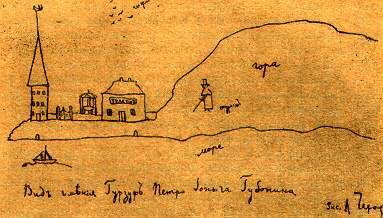 гора
море
Видъ имѣния Гурзуръ Петра Ионыча Губонина
рис. А. Чехов